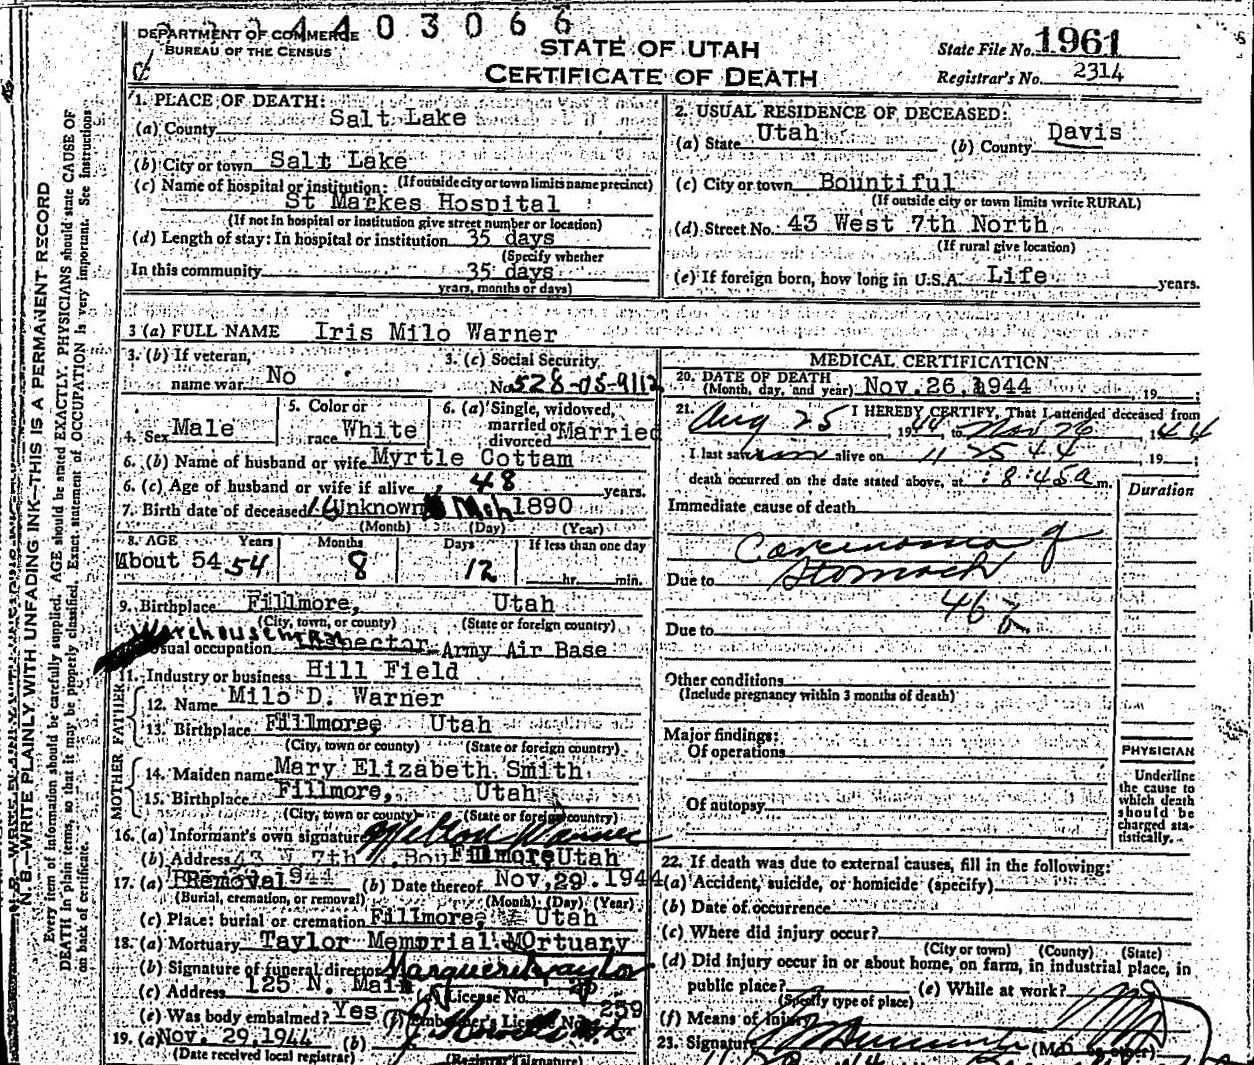 4403066
DEPARTMENT OF COMMERCE
BUREAU OF THE CENSUS
STATE OF UTAH
CERTIFICATE OF DEATH
State File No. 1961
Registrar's No. 2314
N. B.—WRITE PLAINLY WITH UNFADING INK—THIS IS A PERMANENT RECORD
Every item of information should be carefully supplied. AGE should be stated EXACTLY. PHYSICIANS should state CAUSE OF
DEATH in plain terms, so that it may be properly classified. Exact statement of OCCUPATION is very important. See Instructions
on back of certificate.
1. PLACE OF DEATH:
(a) County Salt Lake
(b) City or town Salt Lake
(If outside city or town limits name precinct)
(c) Name of hospital or institution:
St Markes Hospital
(If not in hospital or institution give street number or location)
(d) Length of stay: In hospital or institution 35 days
(Specify whether
In this community 35 days
years, months or days)
2. USUAL RESIDENCE OF DECEASED:
(a) State Utah (b) County Davis
(c) City or town Bountiful
(If outside city or town limits write RURAL)
(d) Street No. 43 West 7th North
(If rural give location)
(e) If foreign born, how long in U.S.A. Life years.
3 (a) FULL NAME Iris Milo Warner
3. (b) If veteran,
name war No
3. (c) Social Security
No. 528-05-9112
4. Sex Male
5. Color or
race White
6. (a) Single, widowed,
married or
divorced Married
6. (b) Name of husband or wife Myrtle Cottam
6. (c) Age of husband or wife if alive 48 years.
7. Birth date of deceased Unknown Mch 1890
(Month) (Day) (Year)
8. AGE Years Months Days If less than one day
About 54 54 8 12 hr. min.
9. Birthplace Fillmore, Utah
(City, town, or county) (State or foreign country)
Usual occupation Inspector Army Air Base
11. Industry or business Hill Field
FATHER
12. Name Milo D. Warner
13. Birthplace Fillmore, Utah
(City, town or county) (State or foreign country)
MOTHER
14. Maiden name Mary Elizabeth Smith
15. Birthplace Fillmore, Utah
(City, town or county) (State or foreign country)
16. (a) Informant's own signature Warner
(b) Address Fillmore Utah
17. (a) Removal (b) Date thereof Nov. 29. 1944
(Burial, cremation, or removal) (Month) (Day) (Year)
(c) Place: burial or cremation Fillmore, Utah
18. (a) Mortuary Taylor Memorial MOrtuary
(b) Signature of funeral director Marguerite Taylor
(c) Address 125 N. Main License No.
(e) Was body embalmed? Yes (f) Embalmer's License No. 259
19. (a) Nov. 29, 1944 (b)
(Date received local registrar) (Registrar's signature)
MEDICAL CERTIFICATION
20. DATE OF DEATH
(Month, day, and year) Nov. 26, 1944, 19
21. I HEREBY CERTIFY, That I attended deceased from
Aug 25, 1944 to Nov 26, 1944
I last saw him alive on 11 25 44, 19 ;
death occurred on the date stated above, at 8:45a m.
Duration
Immediate cause of death
Carcinoma of
Due to Stomach
46 b
Due to
Other conditions
(Include pregnancy within 3 months of death)
Major findings:
Of operations
Of autopsy
PHYSICIAN
Underline
the cause to
which death
should be
charged sta-
tistically.
22. If death was due to external causes, fill in the following:
(a) Accident, suicide, or homicide (specify)
(b) Date of occurrence
(c) Where did injury occur?
(City or town) (County) (State)
(d) Did injury occur in or about home, on farm, in industrial place, in
public place? (e) While at work?
(Specify type of place)
(f) Means of injury
23. Signature (M.D. or other)